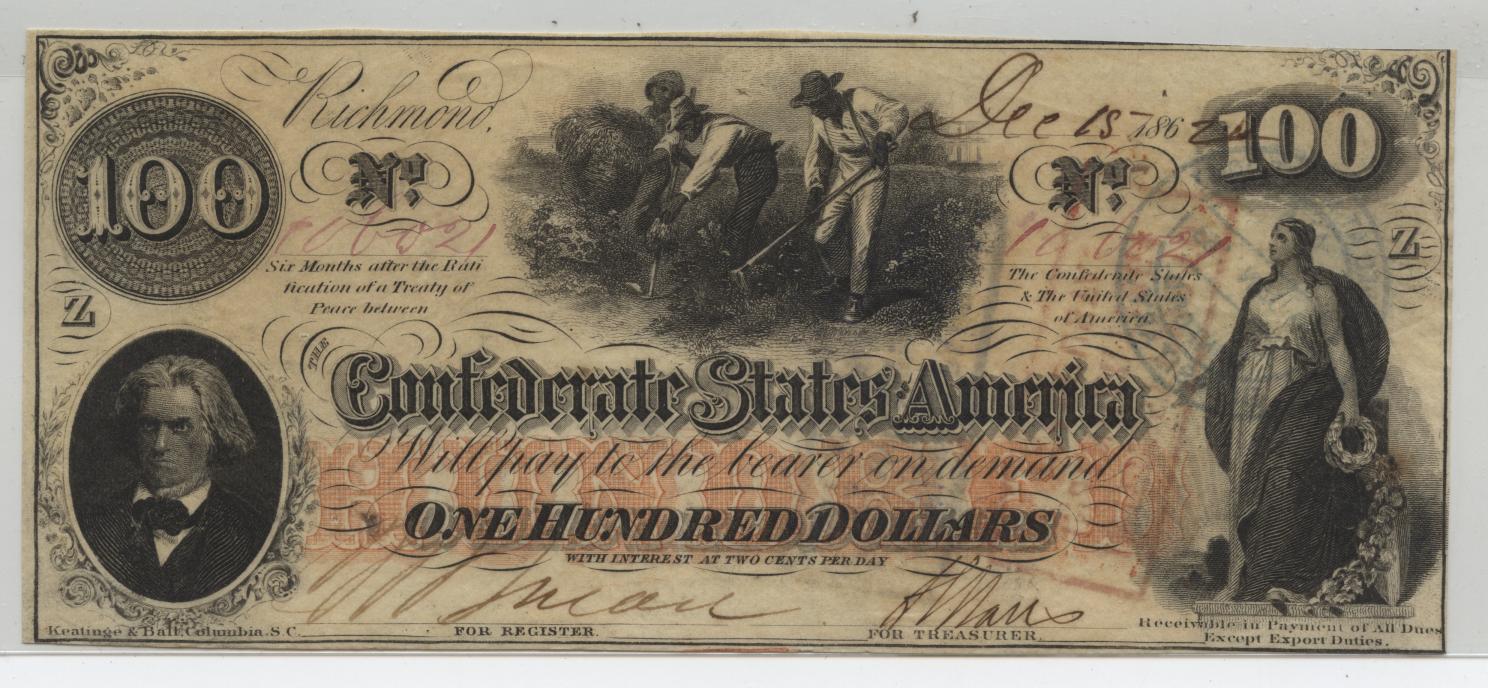 Richmond,
Dec 15 1862
100
100
No.
No.
Six Months after the Rati
fication of a Treaty of
Peace between
The Confederate States
& The United States
of America,
Z
Z
THE
Confederate States America
Will pay to the bearer on demand
HUNDRED
ONE HUNDRED DOLLARS
WITH INTEREST AT TWO CENTS PER DAY
Keatinge & Ball, Columbia. S.C.
FOR REGISTER.
FOR TREASURER.
Receivable in Payment of All Dues
Except Export Duties.